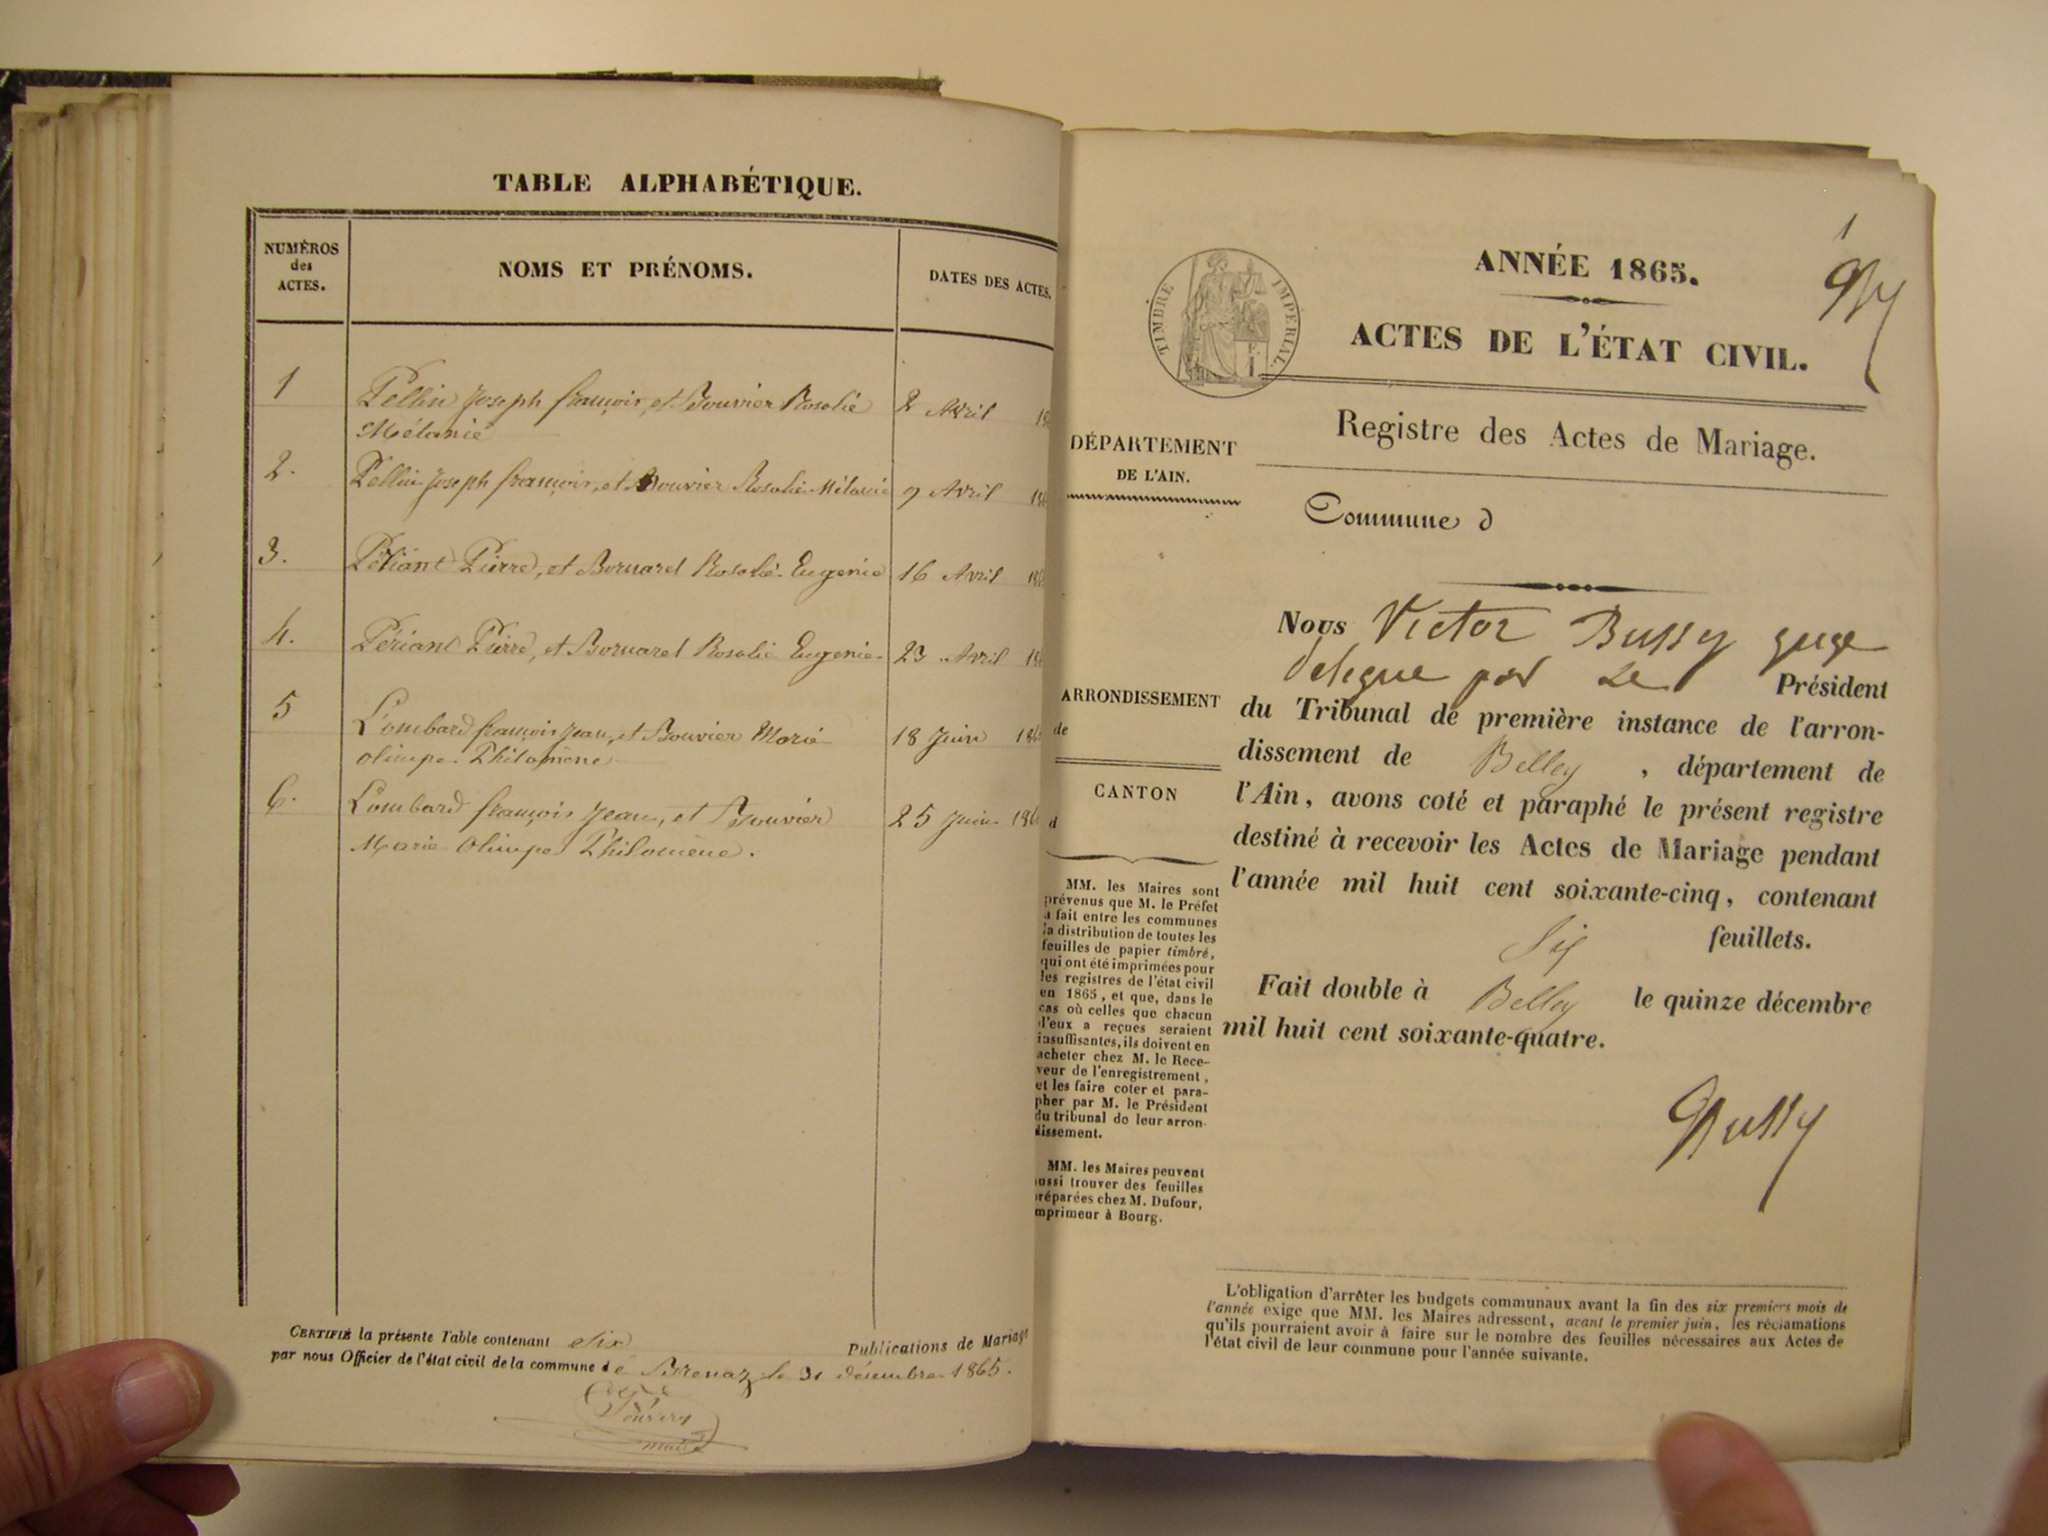 TABLE ALPHABÉTIQUE.
NUMÉROS
des
ACTES.
NOMS ET PRÉNOMS.
DATES DES ACTES.
1
Pellin Joseph françois, et Bouvier Rosalie
Mélanie
2 Avril
2.
Pellin Joseph françois, et Bouvier Rosalie Mélanie
9 Avril
3.
Pierre, et Bornarel Rosalie Eugenie
16 Avril
4.
Périant Pierre, et Bornarel Rosalie Eugenie
23 Avril
5
Lombard françois Jean, et Bouvier Marie
olimpe Philomène
18 Juin
6.
Lombard françois Jean, et Bouvier
Marie Olimpe Philomène.
25 Juin
CERTIFIÉ la présente Table contenant six Publications de Mariage
par nous Officier de l'état civil de la commune de Brenaz le 31 décembre 1865.
maire
1
ANNÉE 1865.
TIMBRE IMPÉRIAL
ACTES DE L'ÉTAT CIVIL.
Registre des Actes de Mariage.
DÉPARTEMENT
DE L'AIN.
Commune d
Nous Victor Bussy juge
delegue par le Président
ARRONDISSEMENT
de
CANTON
d
du Tribunal de première instance de l'arron-
dissement de Belley, département de
l'Ain, avons coté et paraphé le présent registre
destiné à recevoir les Actes de Mariage pendant
l'année mil huit cent soixante-cinq, contenant
Six feuillets.
Fait double à Belley le quinze décembre
mil huit cent soixante-quatre.
Bussy
MM. les Maires sont
prévenus que M. le Préfet
a fait entre les communes
la distribution de toutes les
feuilles de papier timbré,
qui ont été imprimées pour
les registres de l'état civil
en 1865, et que, dans le
cas où celles que chacun
d'eux a reçues seraient
insuffisantes, ils doivent en
acheter chez M. le Rece-
veur de l'enregistrement,
et les faire coter et para-
pher par M. le Président
du tribunal de leur arron-
dissement.
MM. les Maires peuvent
aussi trouver des feuilles
préparées chez M. Dufour,
imprimeur à Bourg.
L'obligation d'arrêter les budgets communaux avant la fin des six premiers mois de
l'année exige que MM. les Maires adressent, avant le premier juin, les réclamations
qu'ils pourraient avoir à faire sur le nombre des feuilles nécessaires aux Actes de
l'état civil de leur commune pour l'année suivante.